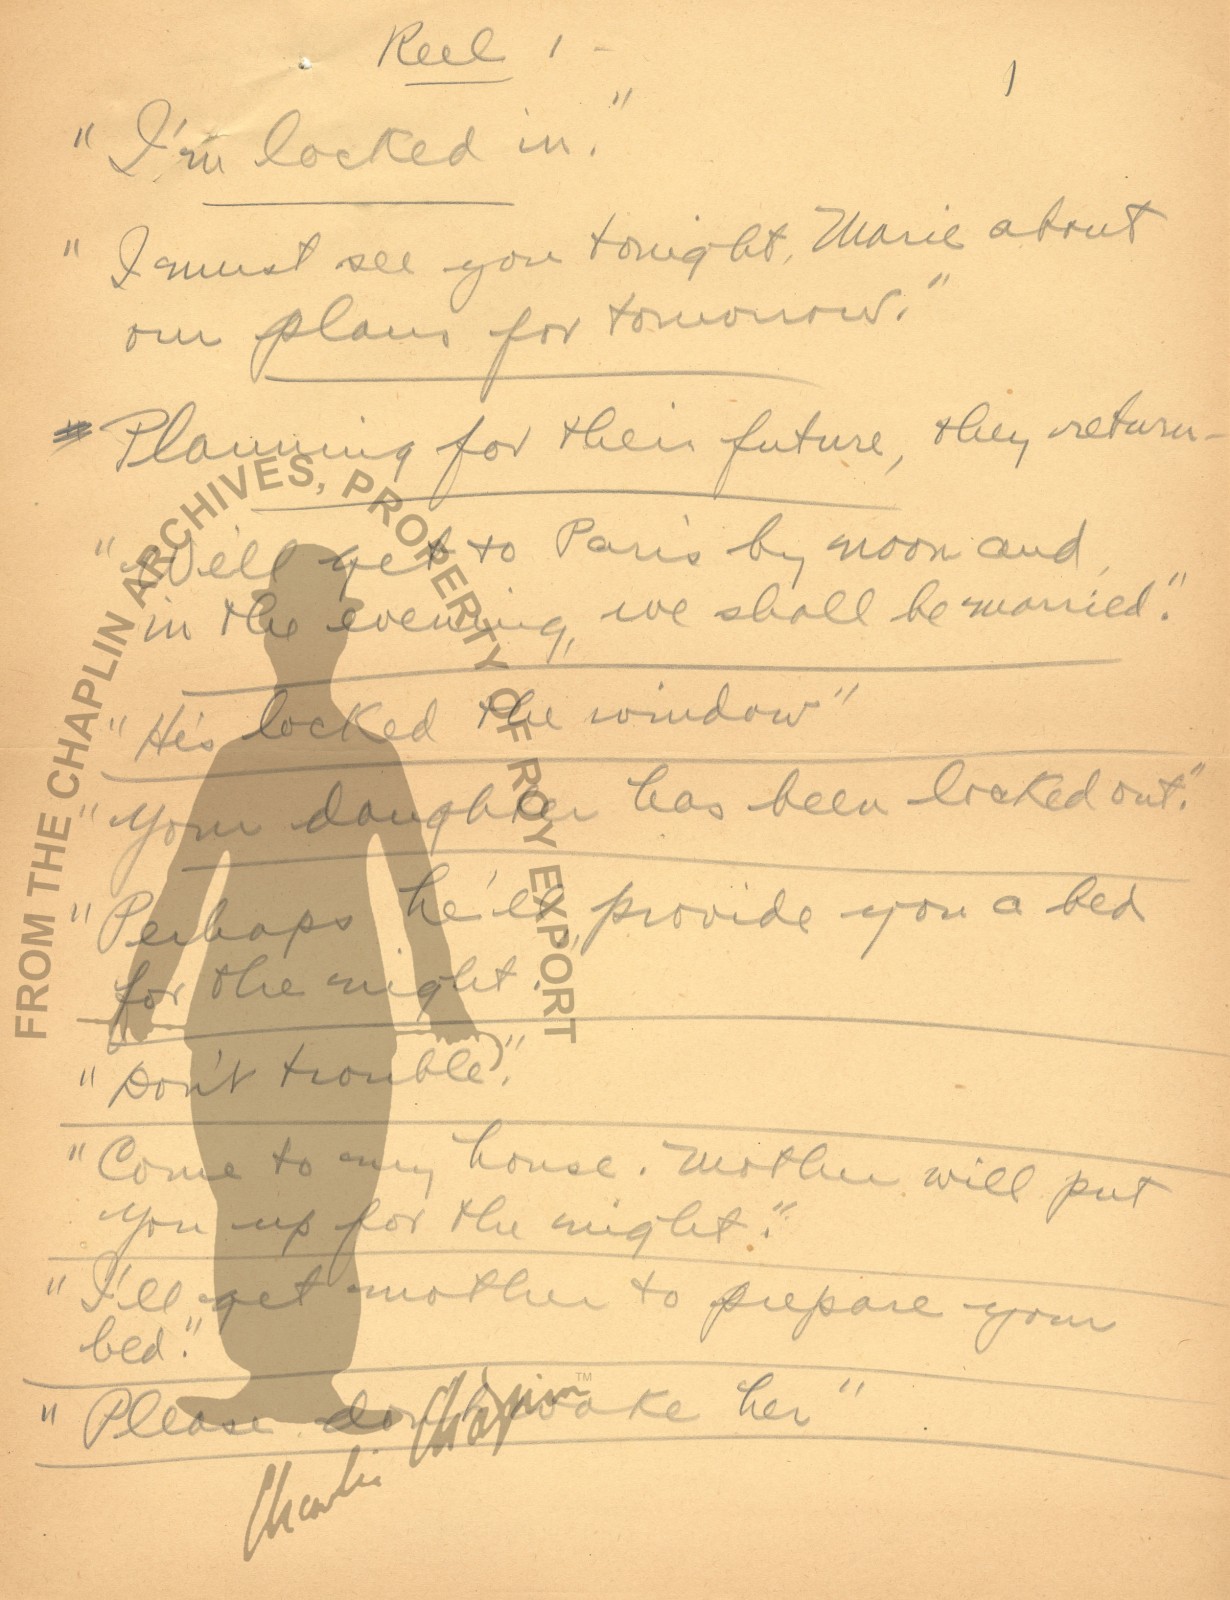 Reel 1 -
1
"I'm locked in."
"I must see you tonight, Marie about
our plans for tomorrow."
Planning for their future, they return-
"We'll get to Paris by noon and
in the evening, we shall be married."
"He's locked the window"
"Your daughter has been locked out."
"Perhaps he'll provide you a bed
for the night.
"Don't trouble."
"Come to my house. Mother will put
you up for the night."
"I'll get mother to prepare your
bed."
"Please don't wake her"
FROM THE CHAPLIN ARCHIVES, PROPERTY OF ROY EXPORT
Charlie Chaplin™